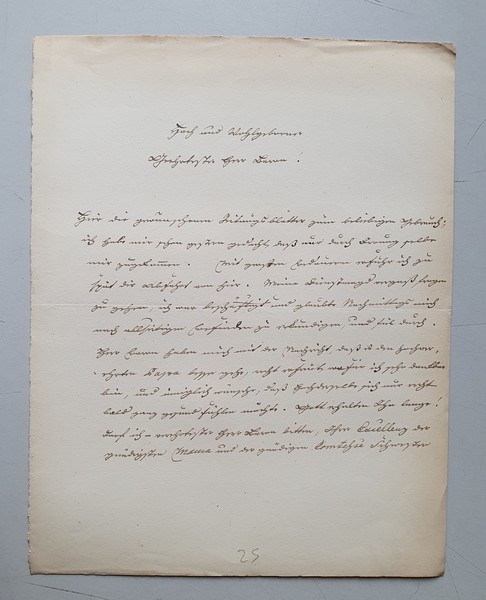 Hoch und Wohlgeborner
Verehrtester Herr Baron!
Hier die gewünschten Zeitungsblätter zum beliebigen Gebrauch;
ich habe mir schon gestern gedacht, daß nur durch
mir zugekommen. Mit großem Bedauern erfuhr ich zu
spät die Abfahrt von hier. Meine
zu gehen, ich war beschäftigt und glaubte Nachmittags mich
nach allseitigem Befinden zu erkundigen, und fiel durch.
Herr Baron haben mich mit der Nachricht, daß es dem hochver-
ehrten Papa besser gehe, recht erfreut, wofür ich sehr dankbar
bin, und inniglich wünsche, daß sich nur recht
bald ganz gesund fühlen möchte. Gott erhalte Ihn lange!
Darf ich verehrtester Herr Baron bitten, Ihrer Excellenz der
gnädigsten Mama und der gnädigen Comtesse Schwester
25